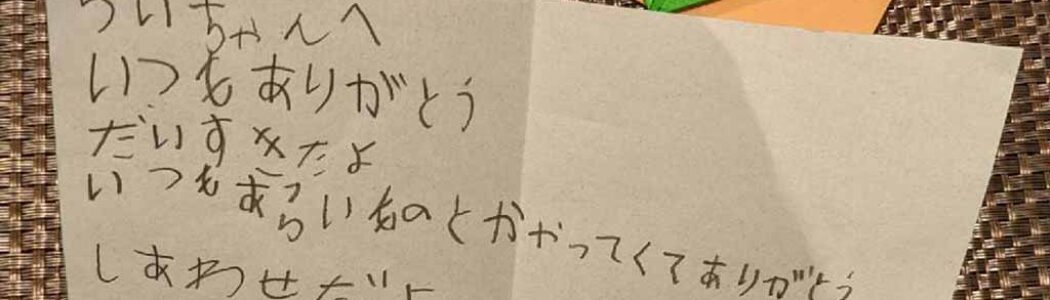 ういちゃんへ
いつもありがとう
だいすきだよ
いつもあらいものとかやってくてありがとう
しあわせだよ